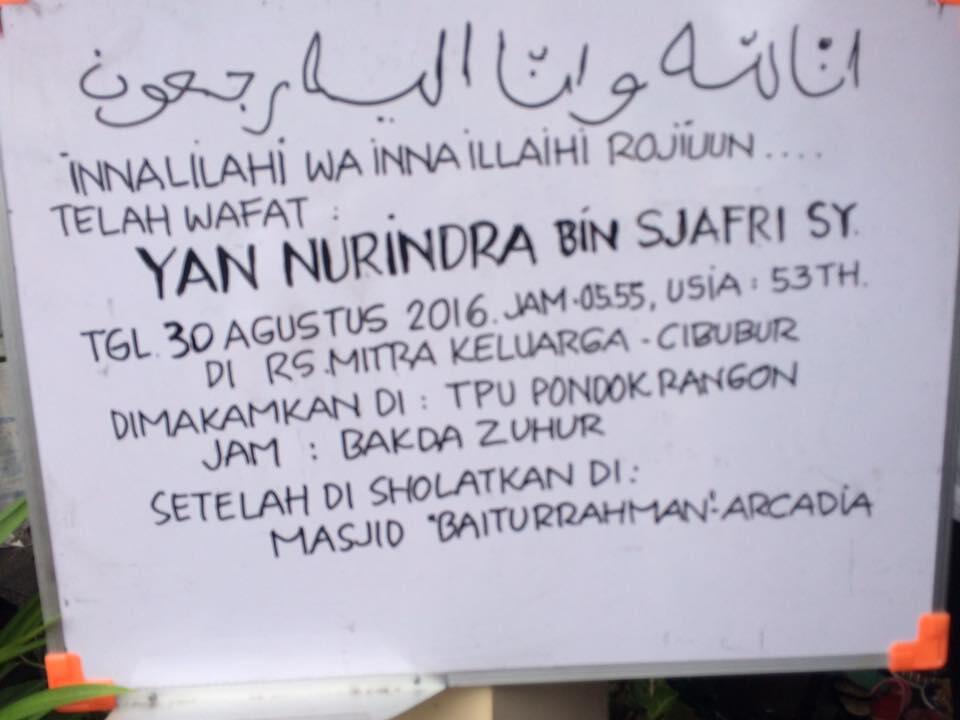 انا لله وانا اليه راجعون
INNALILAHI WA INNA ILLAIHI ROJIUUN ....
TELAH WAFAT :
YAN NURINDRA BIN SJAFRI SY.
TGL. 30 AGUSTUS 2016. JAM.05.55, USIA : 53 TH.
DI RS.MITRA KELUARGA - CIBUBUR
DIMAKAMKAN DI : TPU PONDOK RANGON
JAM : BAKDA ZUHUR
SETELAH DI SHOLATKAN DI :
MASJID "BAITURRAHMAN".ARCADIA